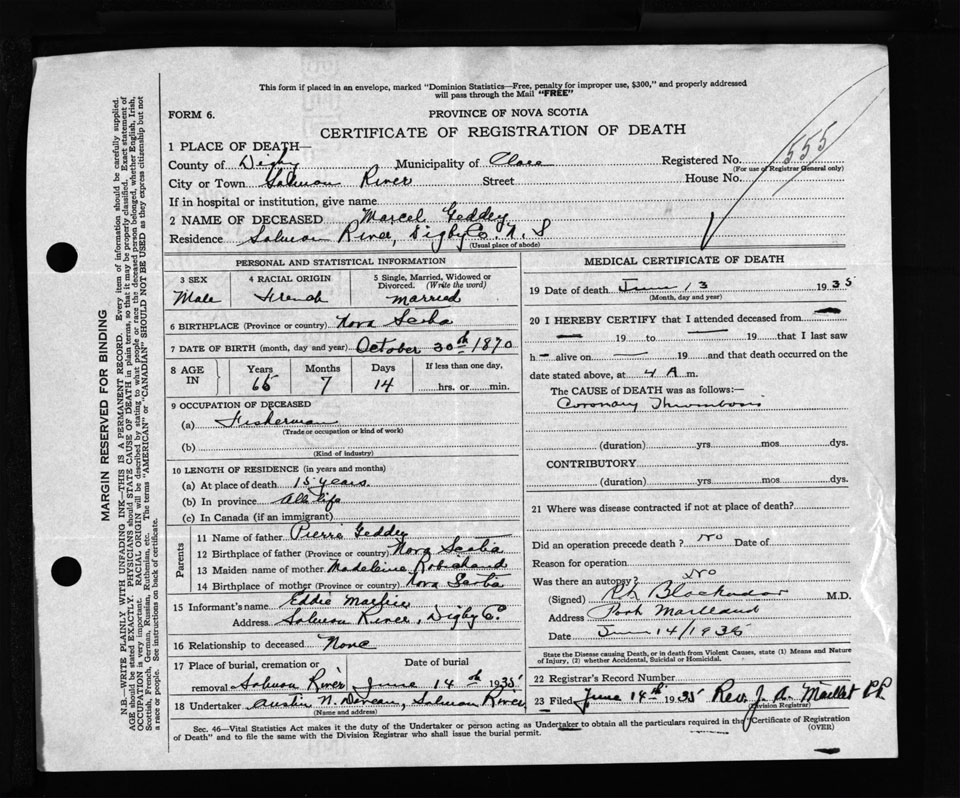 This form if placed in an envelope, marked "Dominion Statistics—Free, penalty for improper use, $300," and properly addressed
will pass through the Mail "FREE"
FORM 6.
PROVINCE OF NOVA SCOTIA
CERTIFICATE OF REGISTRATION OF DEATH
1 PLACE OF DEATH—
County of Digby Municipality of Clare Registered No. 555
(For use of Registrar General only)
City or Town Salmon River Street House No.
If in hospital or institution, give name
2 NAME OF DECEASED Marcel Geddey
Residence Salmon River, Digby Co. N. S
(Usual place of abode)
PERSONAL AND STATISTICAL INFORMATION
3 SEX 4 RACIAL ORIGIN 5 Single, Married, Widowed or Divorced. (Write the word)
Male French married
6 BIRTHPLACE (Province or country) Nova Scotia
7 DATE OF BIRTH (month, day and year) October 30th 1870
8 AGE IN Years Months Days If less than one day,
65 7 14 hrs. or min.
9 OCCUPATION OF DECEASED
(a) Fisherman
(Trade or occupation or kind of work)
(b)
(Kind of industry)
10 LENGTH OF RESIDENCE (in years and months)
(a) At place of death 15 years.
(b) In province All life
(c) In Canada (if an immigrant)
Parents
11 Name of father Pierre Geddey
12 Birthplace of father (Province or country) Nova Scotia
13 Maiden name of mother Madeleine Robichaud
14 Birthplace of mother (Province or country) Nova Scotia
15 Informant's name Eddie
Address Salmon River, Digby Co.
16 Relationship to deceased None
17 Place of burial, cremation or Date of burial
removal Salmon River June 14th 1935
18 Undertaker Austin N. Salmon River
(Name and address)
MEDICAL CERTIFICATE OF DEATH
19 Date of death June 13 1935
(Month, day and year)
20 I HEREBY CERTIFY that I attended deceased from
— 19 to — 19 that I last saw
h — alive on — 19 and that death occurred on the
date stated above, at 4 A m.
The CAUSE OF DEATH was as follows:—
Coronary Thrombosis
(duration) yrs. mos. dys.
CONTRIBUTORY
(duration) yrs. mos. dys.
21 Where was disease contracted if not at place of death?
Did an operation precede death? No Date of
Reason for operation
Was there an autopsy? No
(Signed) Blackadar M.D.
Address Port Maitland
Date June 14/1935
State the Disease causing Death, or in death from Violent Causes, state (1) Means and Nature
of Injury, (2) whether Accidental, Suicidal or Homicidal.
22 Registrar's Record Number
23 Filed June 14th 1935 Rev. J. A. Maillet P.P.
(Division Registrar)
Sec. 46—Vital Statistics Act makes it the duty of the Undertaker or person acting as Undertaker to obtain all the particulars required in the "Certificate of Registration
of Death" and to file the same with the Division Registrar who shall issue the burial permit. (OVER)
MARGIN RESERVED FOR BINDING
N.B.—WRITE PLAINLY WITH UNFADING INK—THIS IS A PERMANENT RECORD. Every item of information should be carefully supplied.
AGE should be stated EXACTLY. PHYSICIANS should STATE CAUSE OF DEATH in plain terms, so that it may be properly classified. Exact statement of
OCCUPATION is very important. RACIAL ORIGIN will be described by stating to what people or race the deceased person belonged, whether English, Irish,
Scottish, French, German, Russian, Ruthenian, etc. The terms "AMERICAN" or "CANADIAN" SHOULD NOT BE USED as they express citizenship but not
a race or people. See instructions on back of certificate.